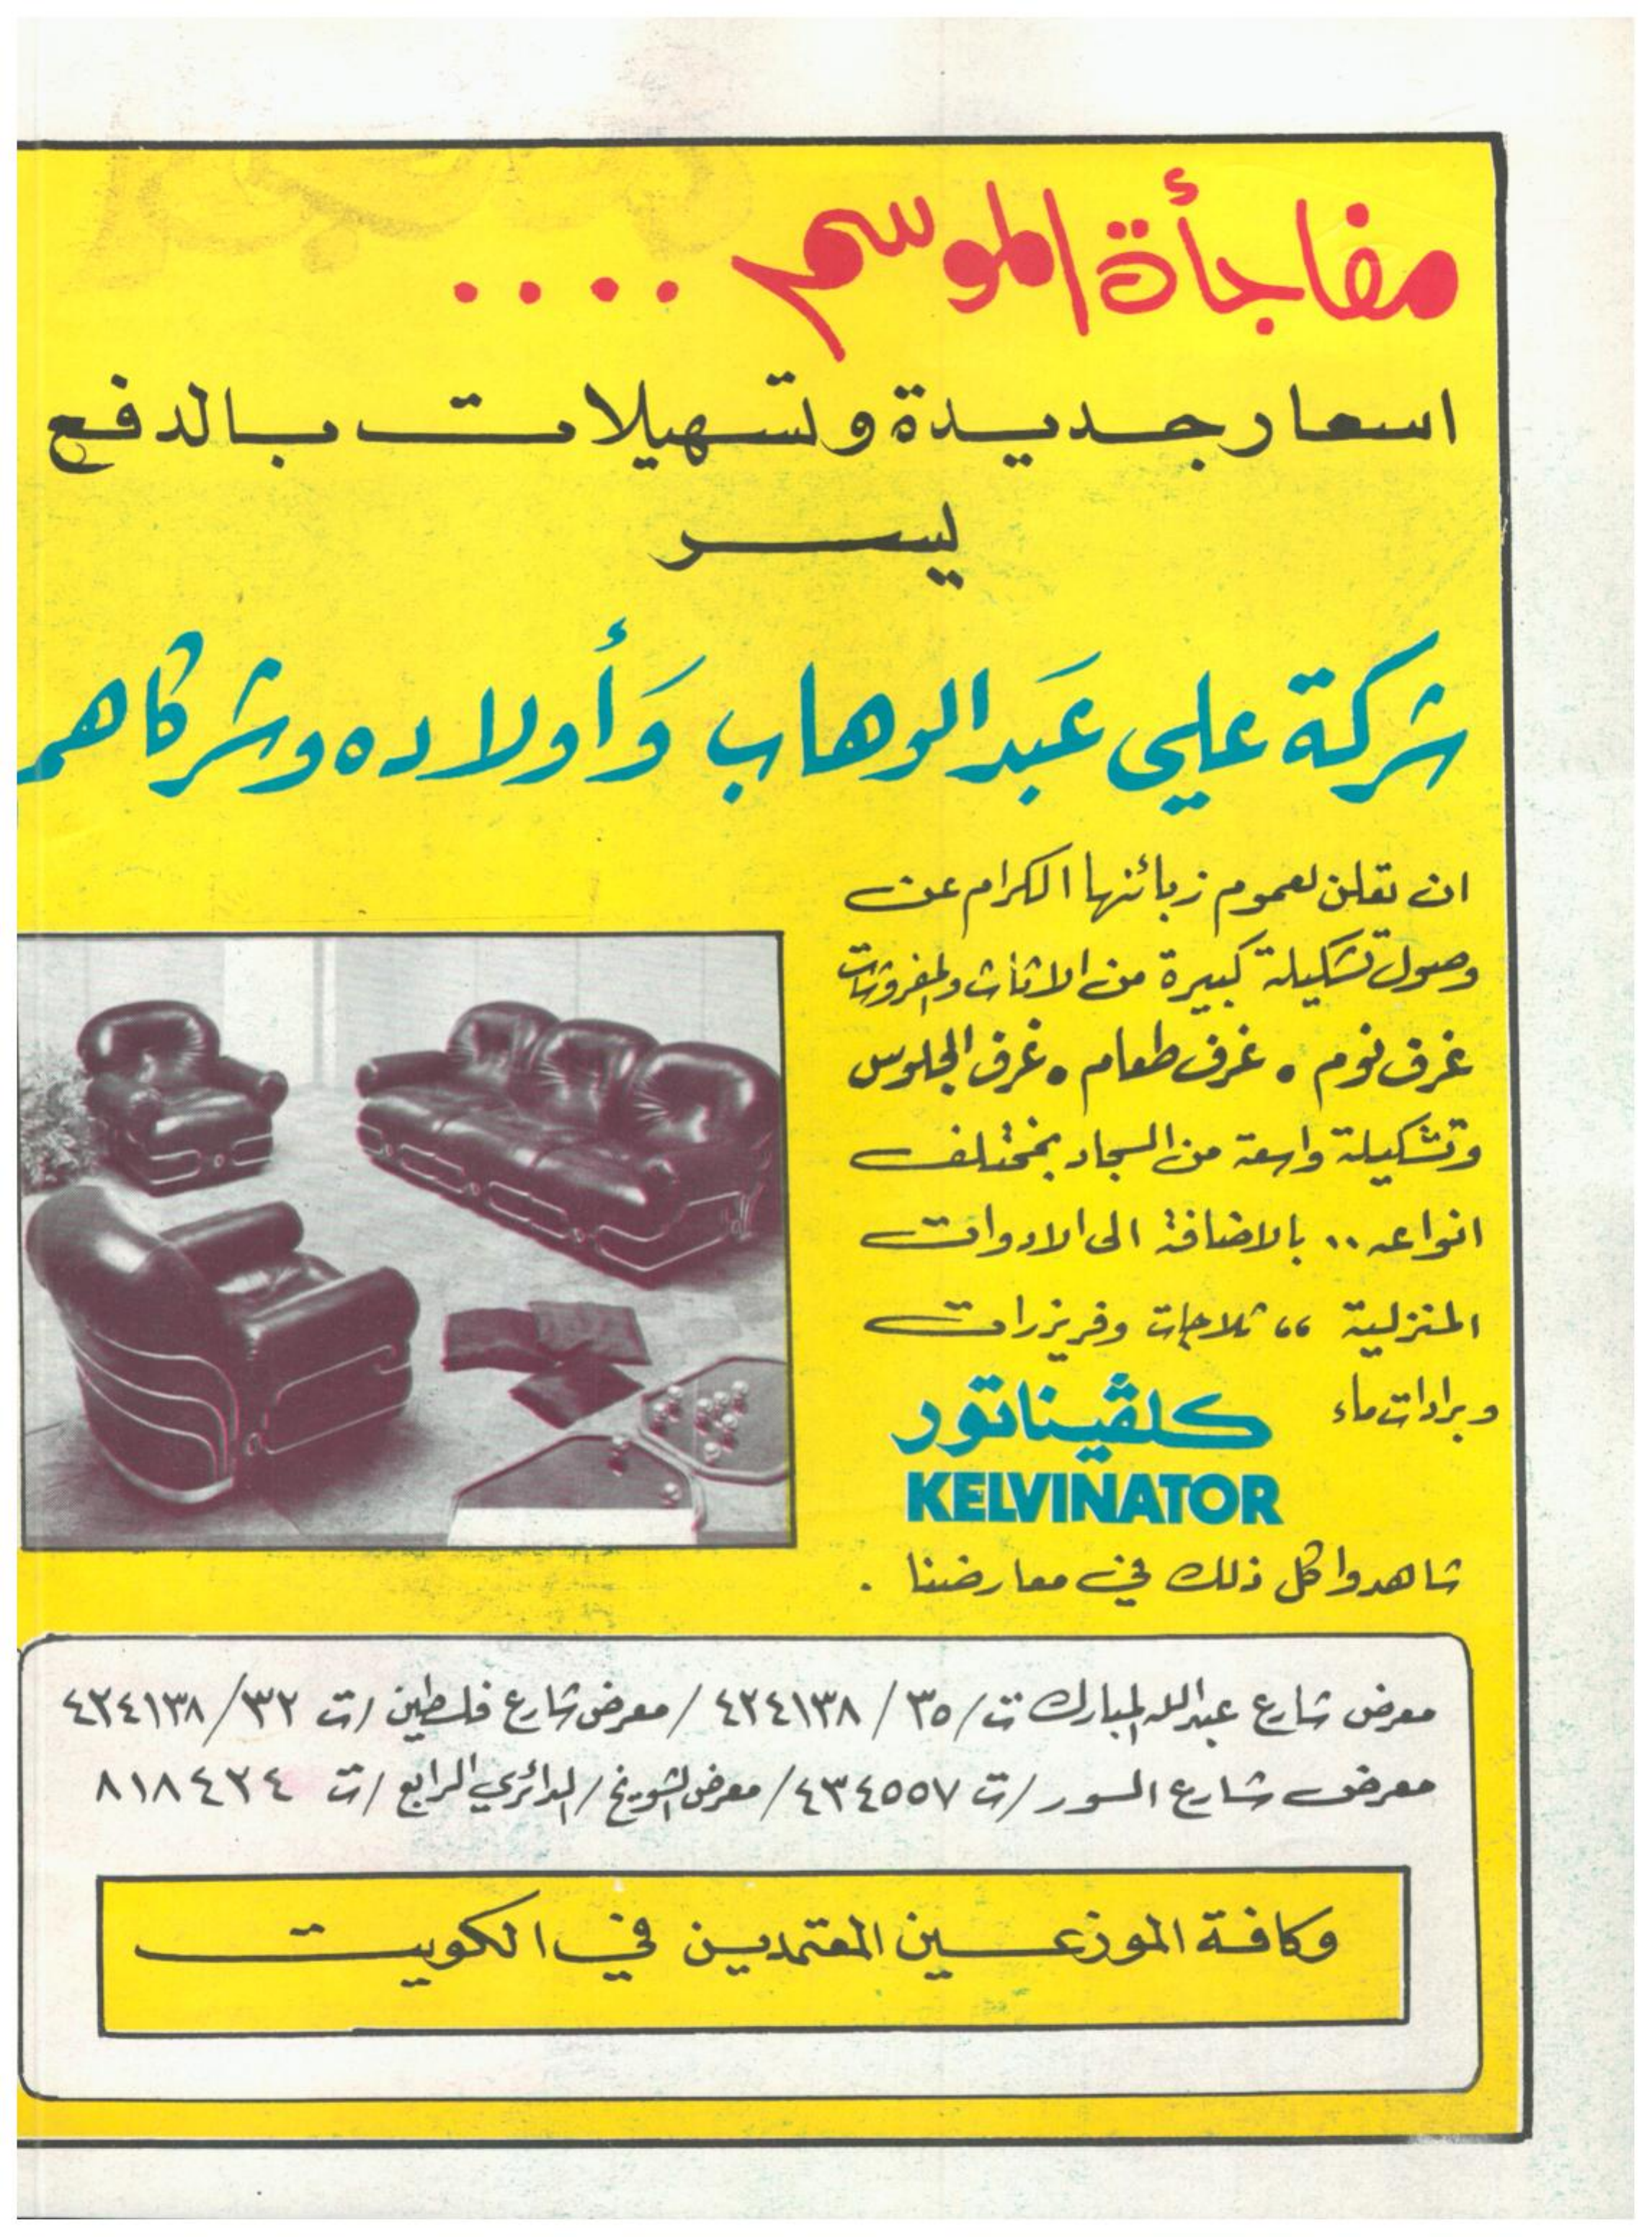 مفاجأة الموسم ....
اسعار جديدة وتسهيلات بالدفع
يسر
شركة علي عَبد الوهاب وَأولاده وشركاهم
ان تعلن لعموم زبائنها الكرام عن
وصول تشكيلة كبيرة من الاثاث والمفروشات
غرف نوم • غرف طعام • غرف الجلوس
وتشكيلة واسعة من السجاد بمختلف
انواعه .. بالاضافة الى الادوات
المنزلية ،، ثلاجات وفريزرات
وبرادات ماء كلڤيناتور
KELVINATOR
شاهدوا كل ذلك في معارضنا .
معرض شارع عبدالله المبارك ت/ ٣٥ / ٤٢٤١٣٨ / معرض شارع فلسطين /ت ٣٢ / ٤٢٤١٣٨
معرض شارع السور /ت ٤٣٤٥٥٧ / معرض الشويخ / الدائري الرابع /ت ٨١٨٤٢٤
وكافة الموزعين المعتمدين في الكويت